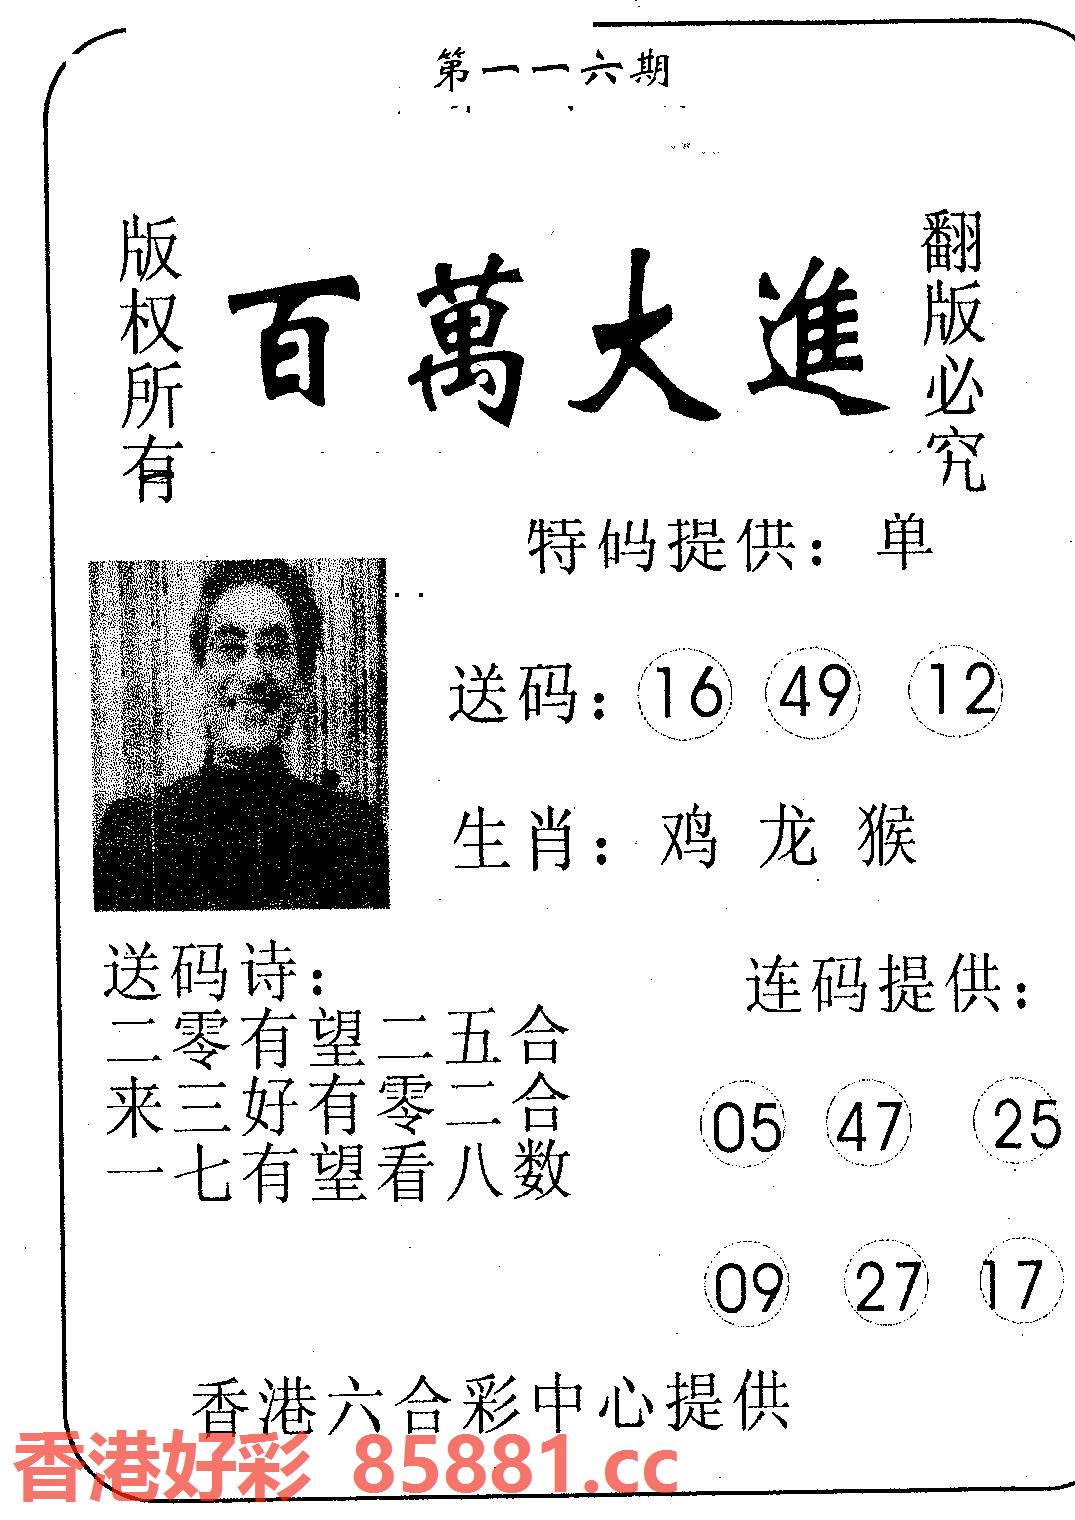 第一一六期
版权所有
百萬大進
翻版必究
特码提供：单
送码：16 49 12
生肖：鸡 龙 猴
送码诗：
二零有望二五合
来三好有零二合
一七有望看八数
连码提供：
05 47 25
09 27 17
香港六合彩中心提供
香港好彩 85881.cc